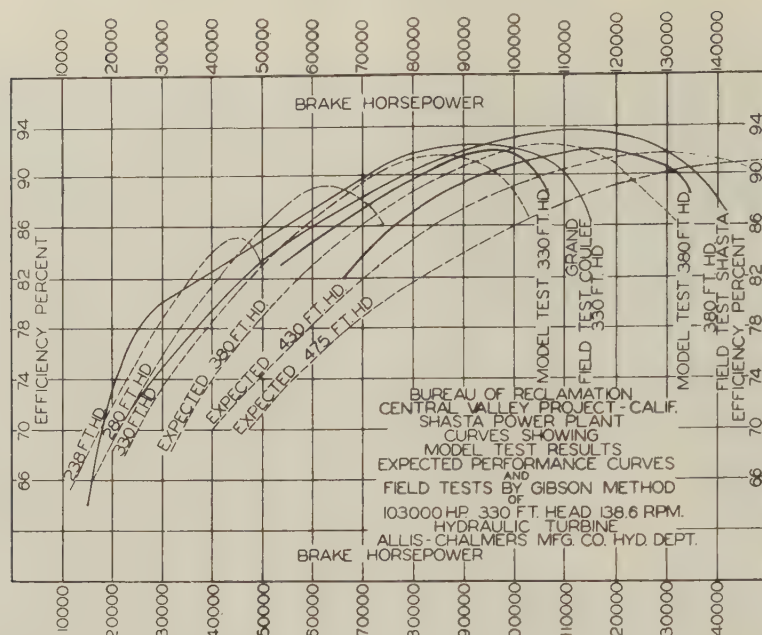 10000 20000 30000 40000 50000 60000 70000 80000 90000 100000 110000 120000 130000 140000
BRAKE HORSEPOWER
94
90
86
82
78
74
70
66
EFFICIENCY PERCENT
94
90
86
82
78
74
70
66
EFFICIENCY PERCENT
238 FT. HD
280 FT. HD
330 FT. HD
EXPECTED 380 FT. HD
EXPECTED 430 FT. HD
EXPECTED 475 FT. HD
MODEL TEST 330 FT. HD
GRAND
FIELD TEST COULEE
330 FT HD
MODEL TEST 380 FT. HD
380 FT. HD
FIELD TEST SHASTA
BUREAU OF RECLAMATION
CENTRAL VALLEY PROJECT-CALIF.
SHASTA POWER PLANT
CURVES SHOWING
MODEL TEST RESULTS
EXPECTED PERFORMANCE CURVES
AND
FIELD TESTS BY GIBSON METHOD
OF
103000 H.P. 330 FT. HEAD 138.6 RPM.
HYDRAULIC TURBINE
ALLIS-CHALMERS MFG. CO. HYD. DEPT.
BRAKE HORSEPOWER
10000 20000 30000 40000 50000 60000 70000 80000 90000 100000 110000 120000 130000 140000